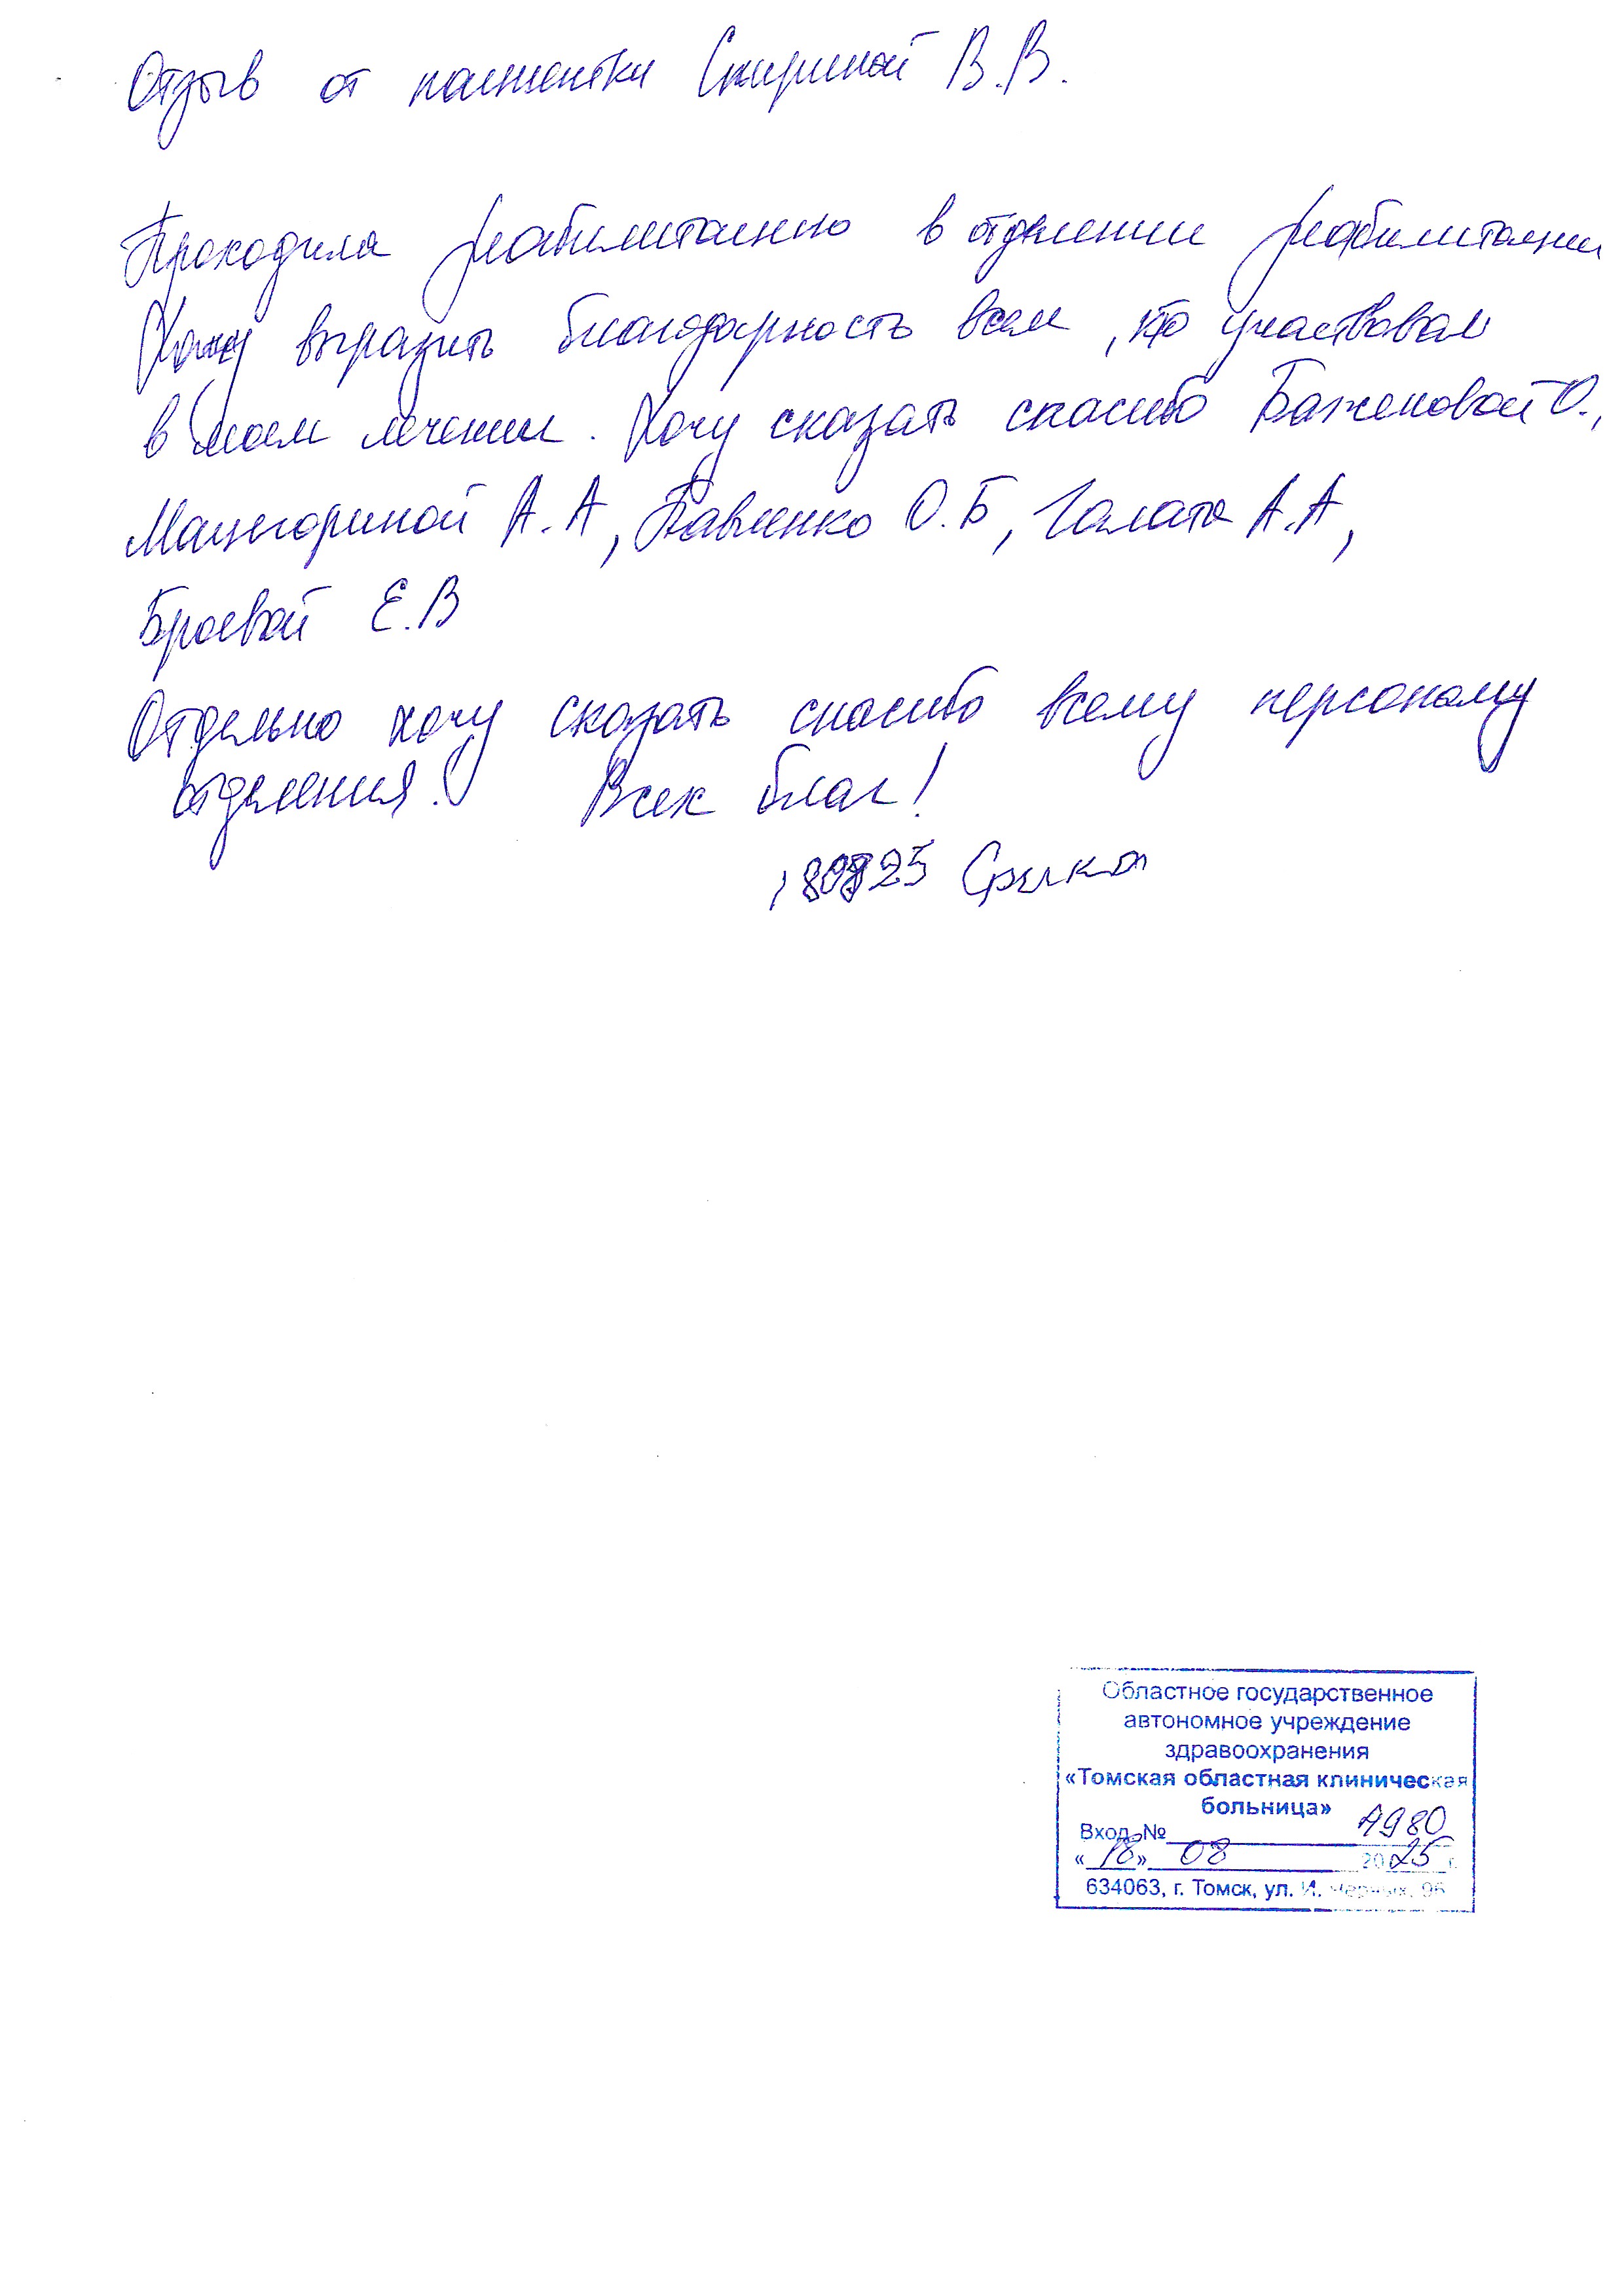 Отзыв от пациентки Спириной В.В.
Проходила реабилитацию в отделении реабилитации
Хочу выразить благодарность всем, кто участвовал
в моем лечении. Хочу сказать спасибо Баженовой О.,
Мацегориной А.А, Павленко О.Б, Галата А.А,
Броевой Е.В
Отдельно хочу сказать спасибо всему персоналу
отделения! Всех благ!
180825
Областное государственное
автономное учреждение
здравоохранения
«Томская областная клиническая
больница»
Вход. № А980
«18» 08 2025 г.
634063, г. Томск, ул. И. Черных, 96